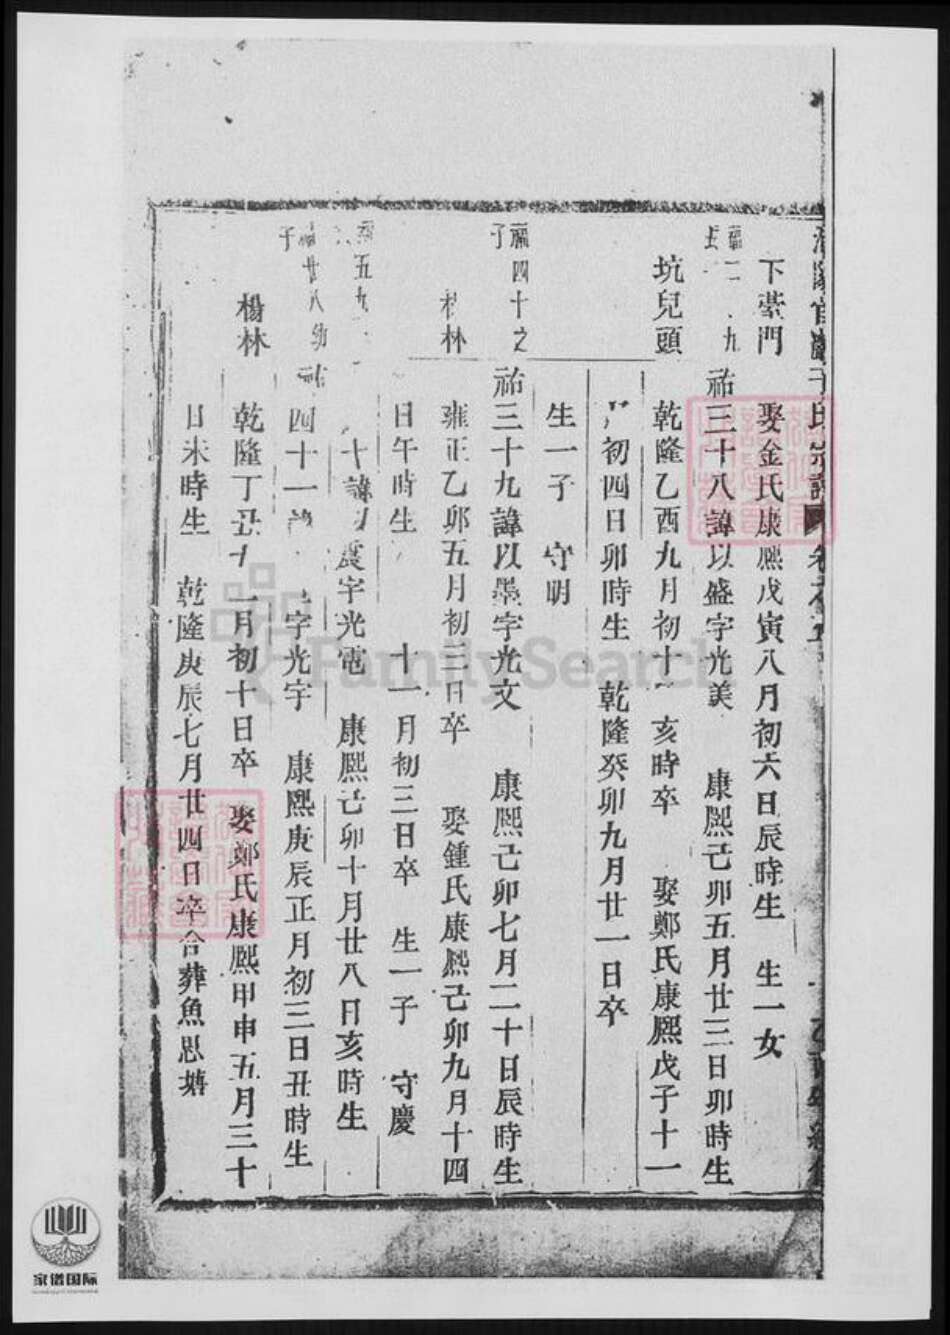 下塋門
娶金氏康熙戊寅八月初六日辰時生 生一女
祐三十八諱以盛字光美 康熙己卯五月廿三日卯時生
坑兒頭
乾隆乙酉九月初十 亥時卒 娶鄭氏康熙戊子十一
初四日卯時生 乾隆癸卯九月廿一日卒
生一子 守明
福四十之
子
祐三十九諱以墨字光文 康熙己卯七月二十日辰時生
林
雍正乙卯五月初三日卒 娶鍾氏康熙己卯九月十四
日午時生 十一月初三日卒 生一子 守慶
五九
十諱 震字光電 康熙己卯十月廿八日亥時生
廿八幼
子
祐四十一諱 字光宇 康熙庚辰正月初三日丑時生
楊林
乾隆丁丑十一月初十日卒 娶鄭氏康熙甲申五月三十
日未時生 乾隆庚辰七月廿四日卒合葬魚思塘
FamilySearch
家谱国际